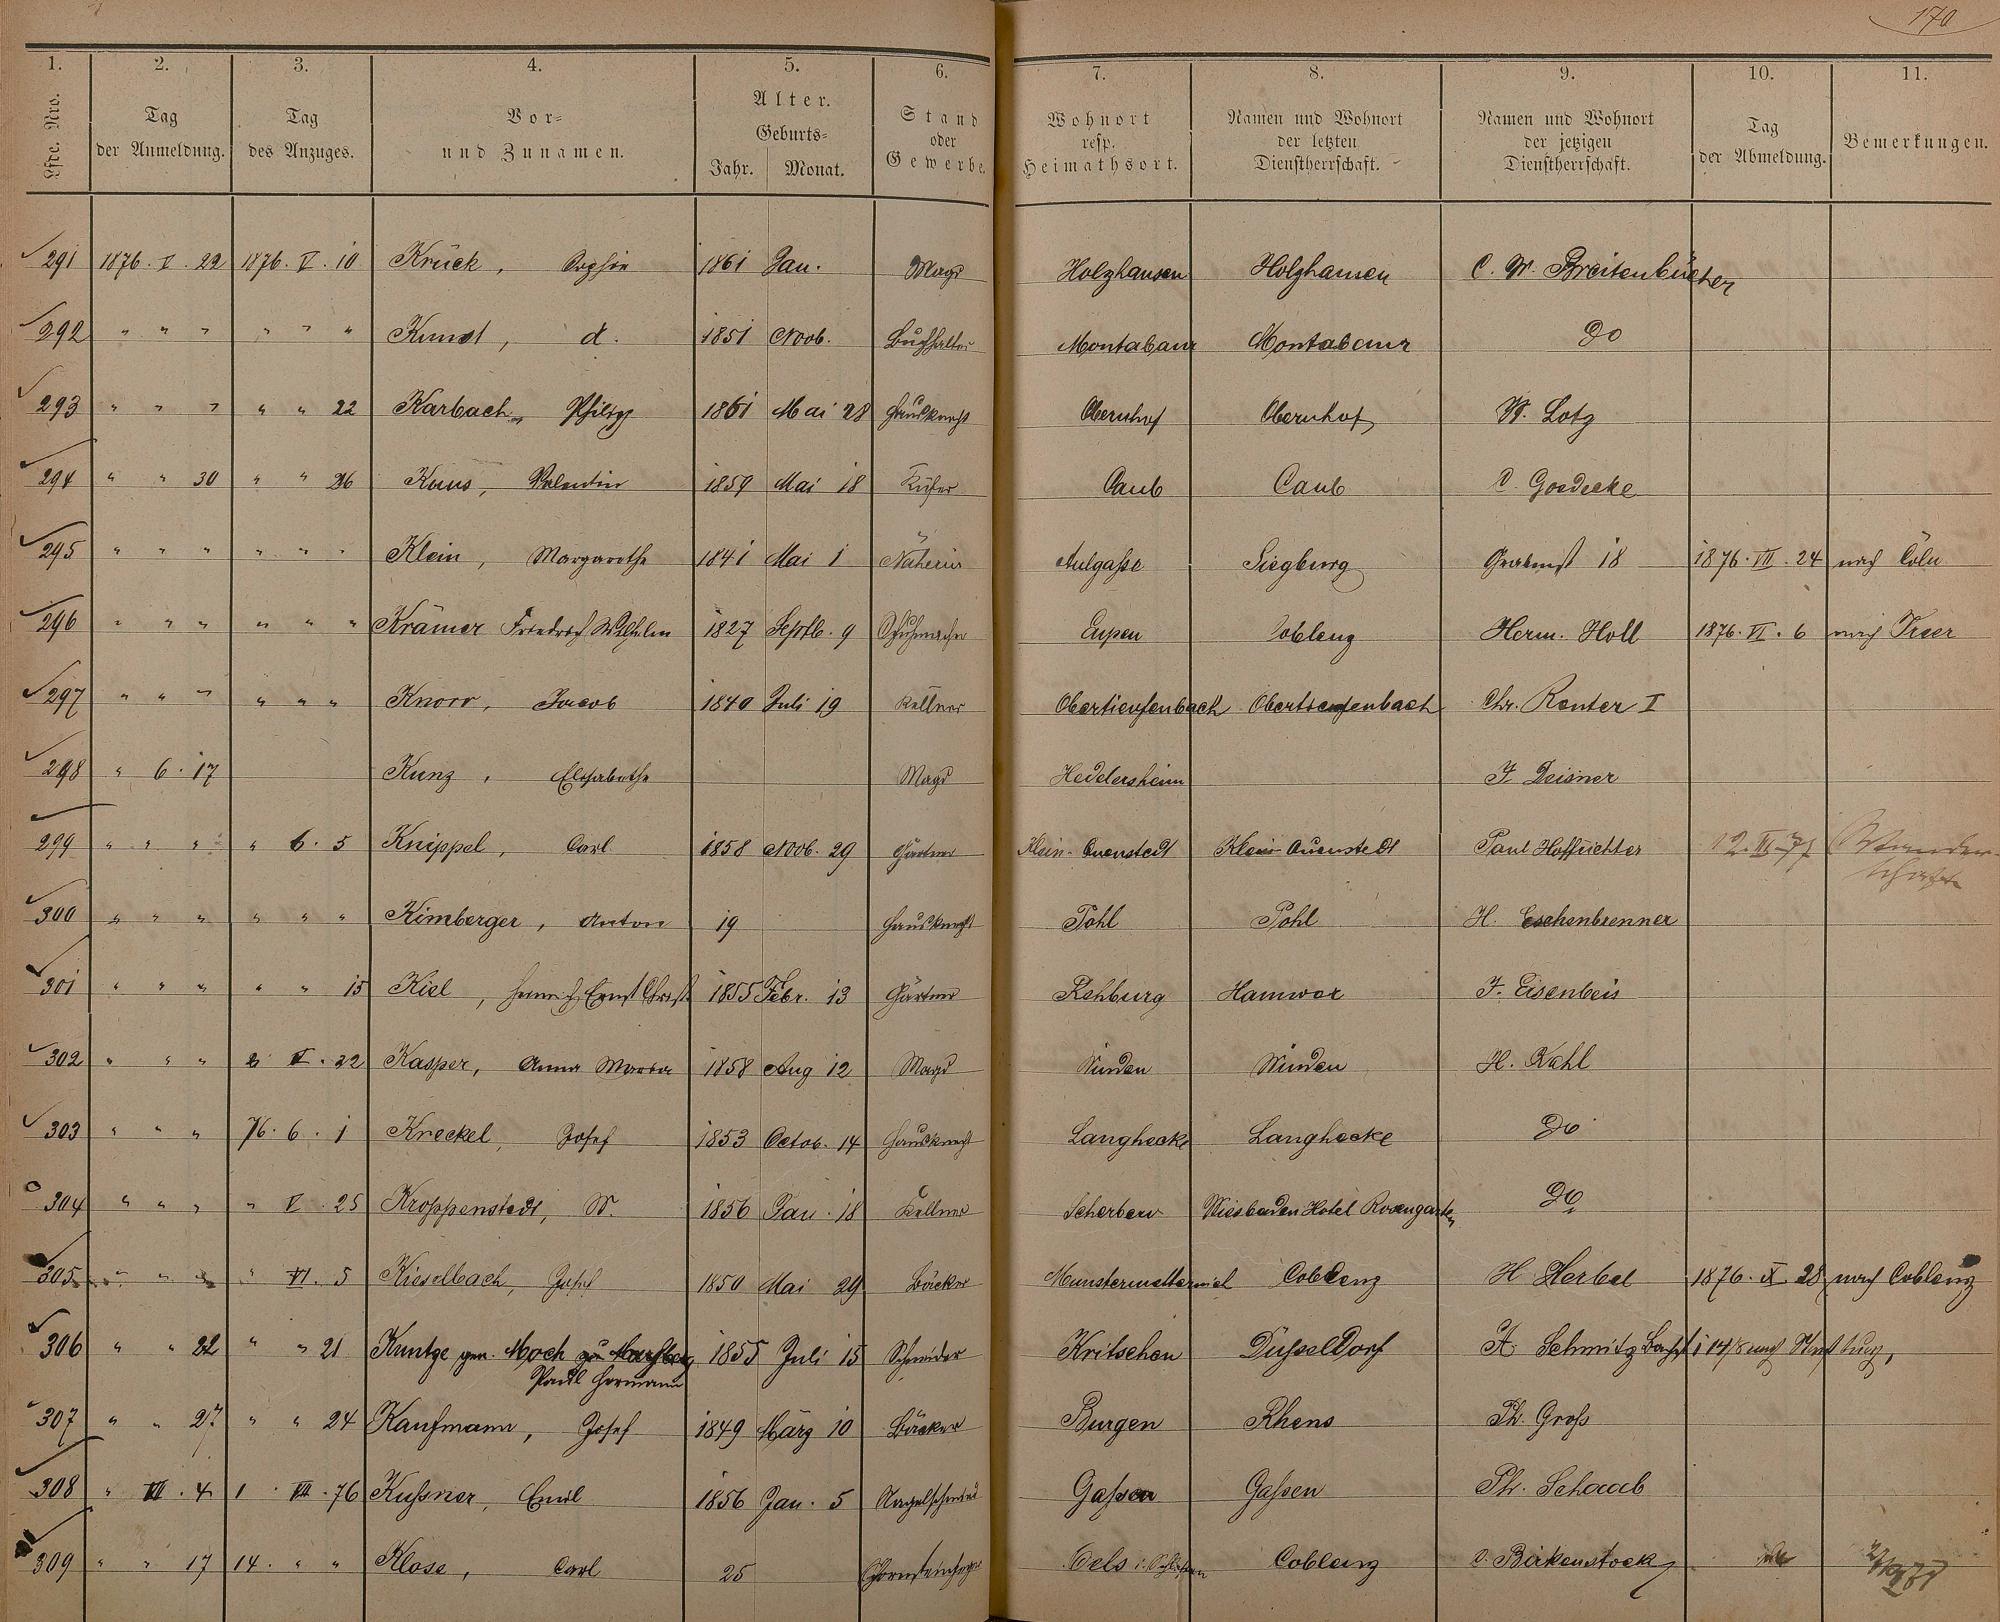 170
1. 2. 3. 4. 5. 6. 7. 8. 9. 10. 11.
Lfde. Nro. Tag der Anmeldung. Tag des Anzuges. Vor- und Zunamen. Alter. Geburts- Jahr. Monat. Stand oder Gewerbe. Wohnort resp. Heimathsort. Namen und Wohnort der letzten Dienstherrschaft. Namen und Wohnort der jetzigen Dienstherrschaft. Tag der Abmeldung. Bemerkungen.
291 1876. V. 22 1876. V. 10 Krück, Sophie 1861 Jan. Magd Holzhausen Holzhausen C. W. Breitenbücher
292 " " " " " " Kunst, A. 1851 Novb. Buchhalter Montabaur Montabaur Do
293 " " " " " 22 Karbach, Philipp 1861 Mai 28 Hausknecht Obernhof Obernhof W. Lotz
294 " " 30 " " 26 Kuus, Valentin 1859 Mai 18 Küfer Caub Caub C. Goedecke
295 " " " " " " Klein, Margarethe 1841 Mai 1 Näherin Aulgaße Siegburg Grabenst 18 1876. VII. 24 nach Cöln
296 " " " " " " Krämer Friedrich Wilhelm 1827 Septb. 9 Schuhmacher Eupen Coblenz Herm. Holl 1876. VI. 6 nach Trier
297 " " " " " " Knorr, Jacob 1840 Juli 19 Kellner Obertiefenbach Obertiefenbach Chr. Renter I
298 " 6. 17 Kunz, Elisabethe Magd Hedelersheim F. Deisner
299 " " " " 6. 5 Knippel, Carl 1858 Novb. 29 Gärtner Klein-Quenstedt Klein Quenstedt Paul Hoffrichter 12. III. 77 Wander-
schaft
300 " " " " " " Kimberger, Anton 19 Hausknecht Pohl Pohl H. Eschenbrenner
301 " " " " " 15 Kiel, Heinrich Ernst Christ. 1855 Febr. 13 Gärtner Rehburg Hannover F. Eisenbeis
302 " " " " V. 22 Kasper, Anna Maria 1858 Aug 12 Magd Winden Winden H. Kahl
303 " " " 76. 6. 1 Kreckel, Josef 1853 Octob. 14 Hausknecht Langhecke Langhecke Do
304 " " " " V. 25 Kroppenstedt, W. 1856 Jan. 18 Kellner Scherben Wiesbaden Hotel Rosengarten Do
305 " " " " VI. 5 Kieselbach, Josef 1850 Mai 29 Bäcker Münstermaifeld Coblenz H Herbel 1876. X. 28 nach Coblenz
306 " " 22 " " 21 Kuntze gen. Moch 1855 Juli 15 Schneider Kritschen Düsseldorf A. Schmitz
Paul Hermann
307 " " 27 " " 24 Kaufmann, Josef 1849 März 10 Bäcker Burgen Rhens Ph. Groß
308 " VII. 4 1. VII. 76 Kußner, Emil 1856 Jan. 5 Nagelschmied Gaßen Gaßen Ph. Schaab
309 " " 17 14. " " Klose, Carl 25 Schornsteinfeger Oels i. Schlesien Coblenz C. Birkenstock